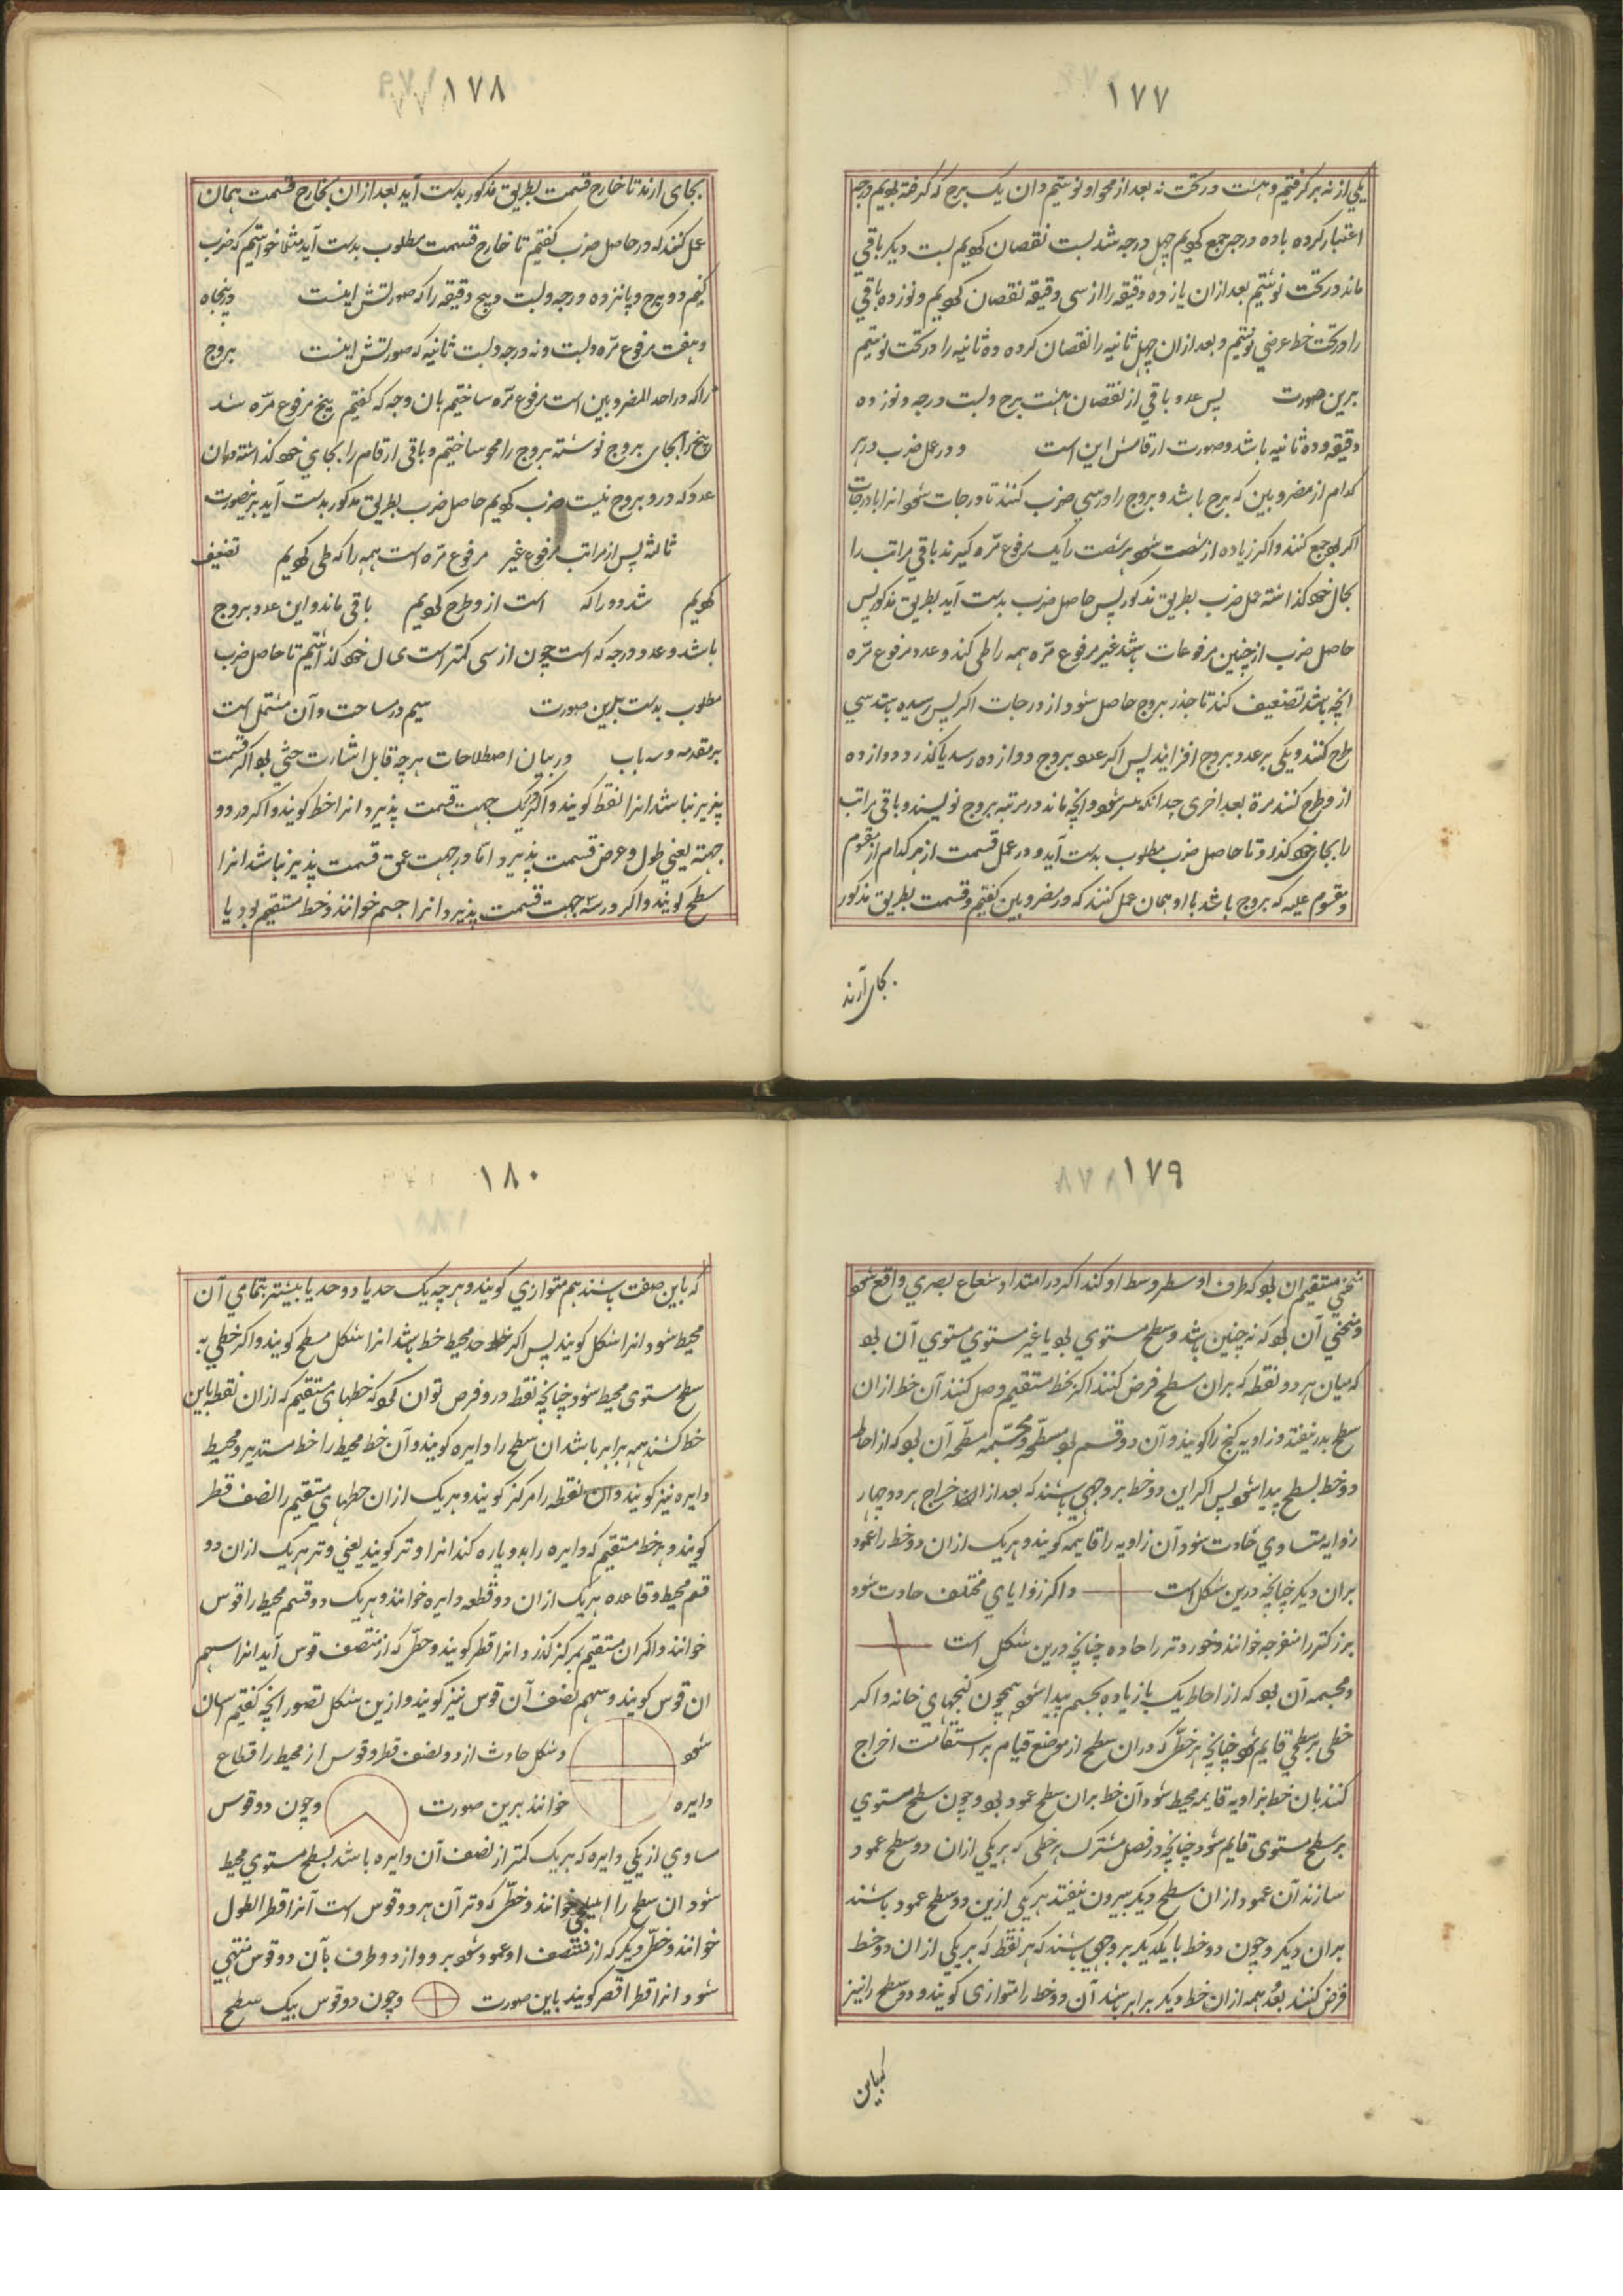 ۱۷۷
یکی از نه برکرفتیم و هشت در تحت نه بعد از محو او نوشتیم و ان یک برج که کرفته بودیم درجه
اعتبار کرده با ده درجه جمع کردیم چهل درجه شد بست نقصان کردیم بست دیکر باقی
ماند در تحت نوشتیم بعد ازان یازده دقیقه را از سی دقیقه نقصان کردیم و نوزده باقی
را در تحت خط عرضی نوشتیم و بعد ازان چهل ثانیه را نقصان کرده ده ثانیه را در تحت نوشتیم
برین صورت پس عدد باقی از نقصان هشت برج و بست درجه و نوزده
دقیقه و ده ثانیه باشد و صورت ارقامش این است و در عمل ضرب در هر
کدام از مضروبین که برج باشد و بروج را در سی ضرب کنند تا درجات شود انرا با درجات
اکر بود جمع کنند و اکر زیاده از شصت شود هر شصت را یک مرفوع مرّه کیرند باقی مراتب را
بحال خود کذاشته عمل ضرب بطریق مذکور پس حاصل ضرب بدست آید بطریق مذکور پس
حاصل ضرب از چنین مرفوعات باشد غیر مرفوع مرّه همه را طی کند و عدد مرفوع مرّه
انچه باشد تضعیف کند تا جذر بروج حاصل شود از درجات اکر بسی رسیده باشد سی
طرح کنند و یکی بر عدد بروج افزایند پس اکر عدد بروج دوازده رسد یا کذرد دوازده
از و طرح کنند مرة بعد اخری چدانکه میسر شود و انچه ماند در مرتبه بروج نویسند و باقی مراتب
را بجای خود کذرد تا حاصل ضرب مطلوب بدست آید و در عمل قسمت از هر کدام از مقسوم
و مقسوم علیه که بروج باشد با او همان عمل کنند که در مضروبین کفتیم و قسمت بطریق مذکور
بجای آرند
۱۷۸
بجای ارند تا خارج قسمت بطریق مذکور بدست آید بعد ازان بخارج قسمت همان
عمل کنند که در حاصل ضرب کفتیم تا خارج قسمت مطلوب بدست آید مثلا خواستیم که ضرب
کنیم دو برج و پانزده درجه و بست و پنج دقیقه را که صورتش اینست در پنجاه
و هفت مرفوع مرّه و بست و نه درجه و بست ثانیه که صورتش اینست بروج
را که در احد المضروبین است مرفوع مرّه ساختیم بان وجه که کفتیم پنج مرفوع مرّه شد
پنج را بجای بروج نوشته بروج را محو ساختیم و باقی ارقام را بجای خود کذاشته دران
عدد که درو بروج نیست ضرب کردیم حاصل ضرب بطریق مذکور بدست آید برینصورت
ثالثه پس از مراتب مرفوع غیر مرفوع مرّه است همه را که طی کردیم تضعیف
کردیم شد دو را که است از و طرح کردیم باقی ماند و این عدد بروج
باشد و عدد درجه که است چون از سی کمتر است بحال خود کذاشتیم تا حاصل ضرب
مطلوب بدست بدین صورت سیم در مساحت و آن مشتمل است
بر مقدمه و سه باب در بیان اصطلاحات هر چه قابل اشارت حسّی بود اکر قسمت
پذیر نباشد انرا نقطه کویند و اکر در یک جهت قسمت پذیرد انرا خط کویند و اکر در دو
جهت یعنی طول و عرض قسمت پذیرد اما در جهت عمق قسمت پذیر نباشد انرا
سطح کویند و اکر در سه جهت قسمت پذیرد انرا جسم خوانند و خط مستقیم بود یا
۱۷۹
منحنی مستقیم ان بود که طرف او سطر وسط او کند اکر در امتداد شعاع بصری واقع شود
و منحنی آن بود که نه چنین باشد و سطح مستوی بود یا غیر مستوی مستوی آن بود
که میان هر دو نقطه که بران سطح فرض کنند اکر بخط مستقیم وصل کنند آن خط ازان
سطح بدر نیفتد و زاویه کنج را کویند و آن دو قسم بود مسطّحه و مجسّمه مسطّحه آن بود که از احاطه
دو خط بسطح پیدا شود پس اکر این دو خط بر وجهی باشند که بعد از اخراج هر دو چهار
زوایه متساوی حادث شود آن زاویه را قایمه کویند و هر یک ازان دو خط را عمود
بران دیکر چنانچه درین شکل است و اکر زوایای مختلف حادث شود
بزرکتر را منفرجه خوانند و خوردتر را حاده چنانچه درین شکل است
و مجسمه آن بود که از احاطه یک یا زیاده بجسم پیدا شود همچون کنجهای خانه و اکر
خطی بر سطحی قایم شود چنانچه هر خطّی که دران سطح از موضع قیام بر استقامت اخراج
کنند بان خط بزاویه قایمه محیط شود آن خط بران سطح عمود بود و چون سطح مستوی
بر سطح مستوی قایم شود چنانچه در فصل مشترک هر خطی که بر یکی ازان دو سطح عمود
سازند آن عمود ازان سطح دیکر بیرون نیفتد هر یکی ازین دو سطح عمود باشند
بران دیکر و چون دو خط با یکدیکر بر وجهی باشند که هر نقطه که بر یکی ازان دو خط
فرض کنند بُعد همه ازان خط دیکر برابر باشد آن دو خط را متوازی کویند و دو سطح را نیز
که باین
۱۸۰
که باین صفت باشند هم متوازی کویند و هر چه یک حد یا دو حد یا بیشتر بتمامی آن
محیط شود انرا شکل کویند پس اکر حد محیط خط باشد انرا شکل مسطح کویند و اکر خطی به
سطح مستوی محیط شود چنانچه نقطه درو فرض توان کرد که خطهای مستقیم که ازان نقطه باین
خط کشند همه برابر باشد ان سطح را دایره کویند و آن خط محیط را خط مستدیر و محیط
دایره نیز کویند و ان نقطه را مرکز کویند و هر یک ازان خطهای مستقیم را نصف قطر
کویند و هر خط مستقیم که دایره را بدو پاره کند انرا وتر کویند یعنی وتر هر یک ازان دو
قسم محیط و قاعده هر یک ازان دو قطعه دایره خوانند و هر یک دو قسم محیط را قوس
خوانند و اکر ان مستقیم بمرکز کذرد انرا قطر کویند و خطّی که از منتصف قوس آید انرا سهم
ان قوس کویند و سهم نصف آن قوس نیز کویند و ازین شکل تصور انچه کفتیم اسان
شود و شکل حادث از دو نصف قطر و قوس از محیط را قطاع
دایره خوانند برین صورت و چون دو قوس
مساوی از یکی دایره که هر یک کمتر از نصف آن دایره باشد بسطح مستوی محیط
شود ان سطح را اهلیلجی خوانند و خطّی که وتر آن هر دو قوس است آنرا قطر اطول
خوانند و خطّی دیکر که از منتصف او عمود شود برو و از دو طرف بآن دو قوس منتهی
شود انرا قطر اقصر کویند باین صورت و چون دو قوس بیک سطح